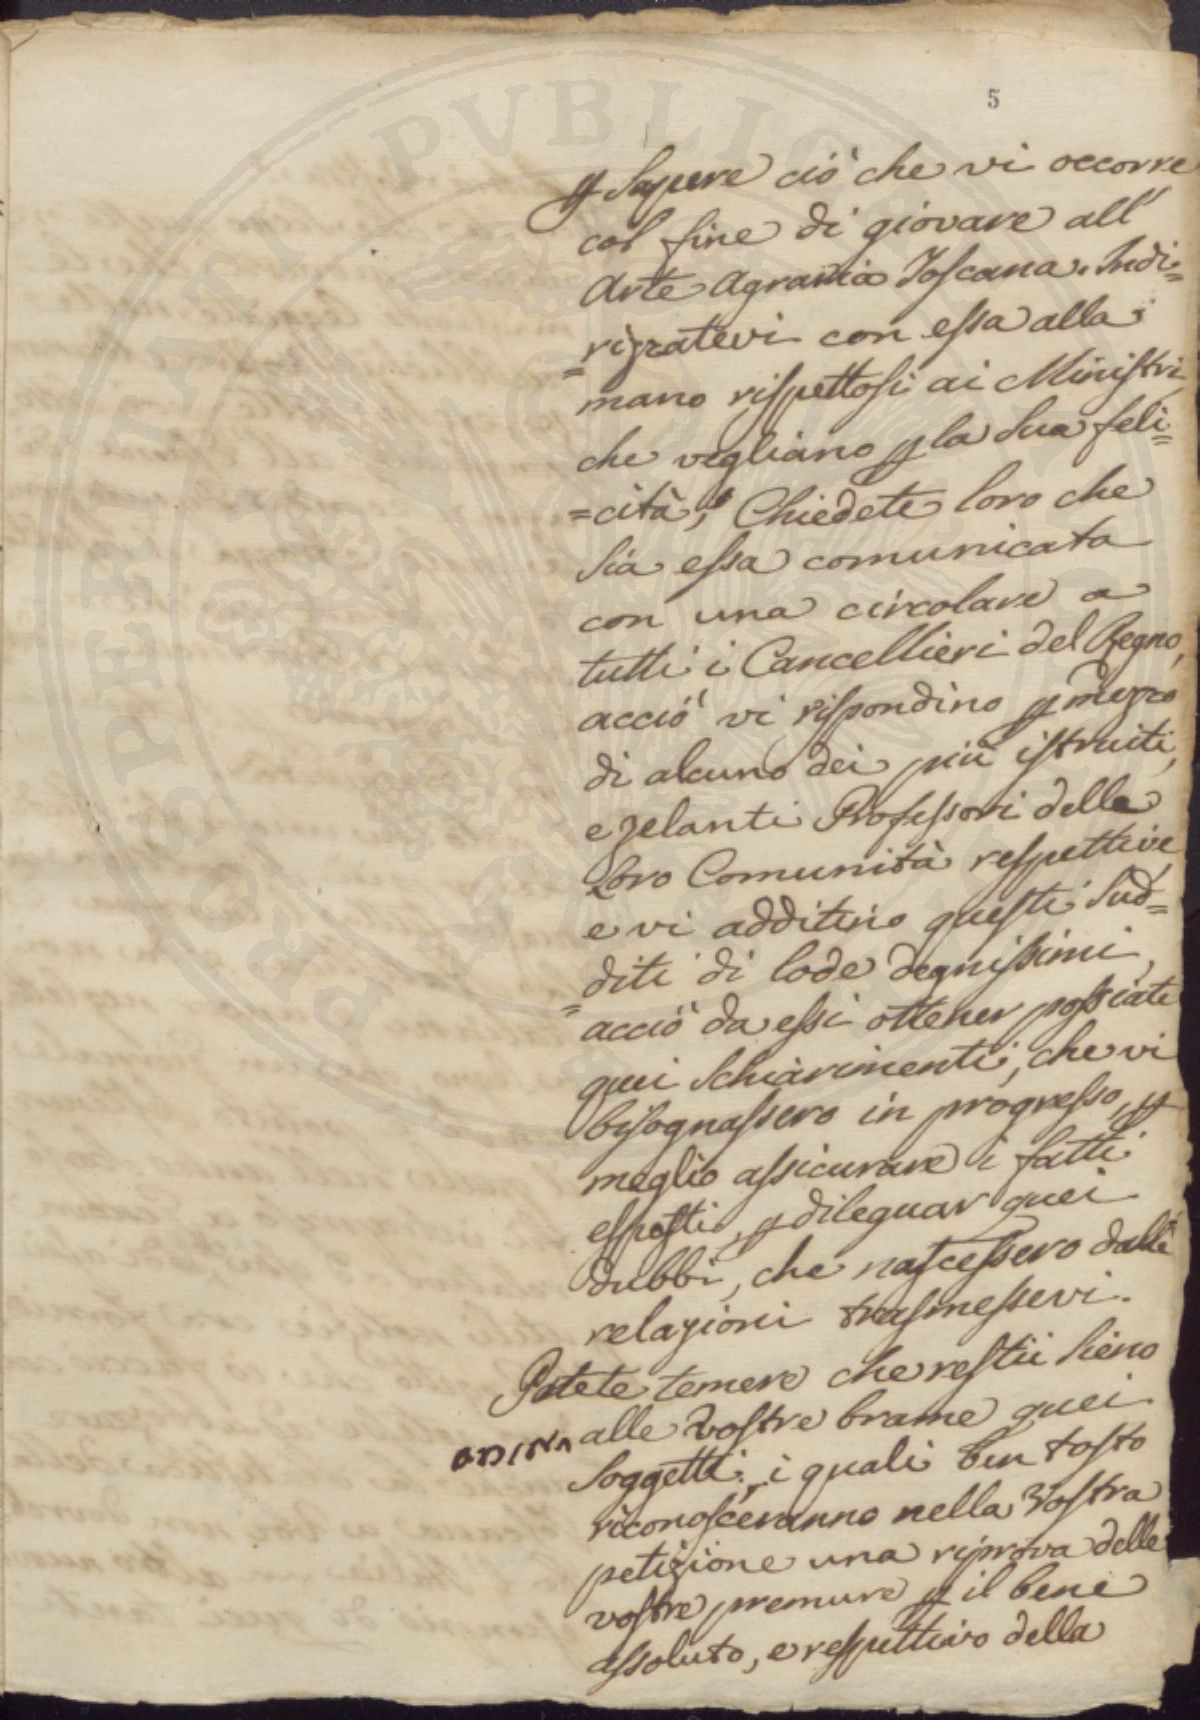 5
p Sapere ciò che vi occorre
col fine di giovare all'
Arte Agraria Toscana. Indi=
=rizzatevi con essa alla
mano rispettosi ai Ministri,
che vegliano p la sua feli=
=cità, Chiedete loro che
sia essa comunicata
con una circolare a
tutti i Cancellieri del Regno,
acciò vi rispondino p mezzo
di alcuno dei più istruiti,
e zelanti Professori delle
Loro Comunità respettive,
e vi additino questi Sud=
=diti di lode degnissimi,
acciò da essi ottener possiate
quei schiarimenti, che vi
bisognassero in progresso, p
meglio assicurare i fatti
esposti, p dileguar quei
dubbi, che nascessero dalle
relazioni trasmessevi.
Potete temere che restii sieno
alle Vostre brame quei
soggetti, i quali ben tosto
riconosceranno nella Vostra
petizione una riprova delle
vostre premure p il bene
assoluto, e respettivo della
PROSPERITATI PVBLICAE